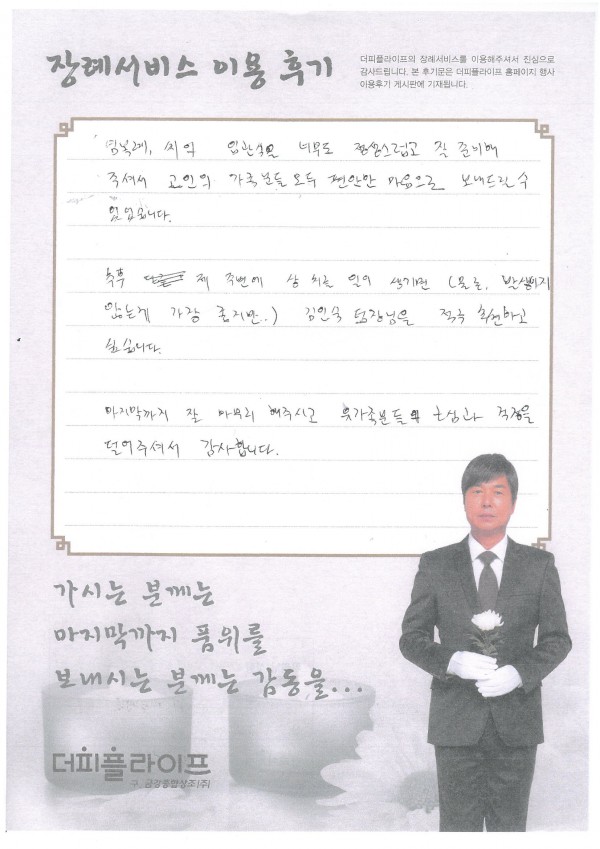 장례서비스 이용 후기
더피플라이프의 장례서비스를 이용해주셔서 진심으로
감사드립니다. 본 후기문은 더피플라이프 홈페이지 행사
이용후기 게시판에 기재됩니다.
씨의 입관식을 너무도 정성스럽고 잘 준비해
주셔서 고인의 가족분들 모두 편안한 마음으로 보내드릴 수
있었습니다.
추후 제 주변에 상 치를 일이 생기면 (물론, 발생하지
않는게 가장 좋지만..) 김인숙 팀장님을 적극 추천하고
싶습니다.
마지막까지 잘 마무리 해주시고 유가족분들의 근심과 걱정을
덜어주셔서 감사합니다.
가시는 분께는
마지막까지 품위를
보내시는 분께는 감동을...
더피플라이프
구. 금강종합상조(주)